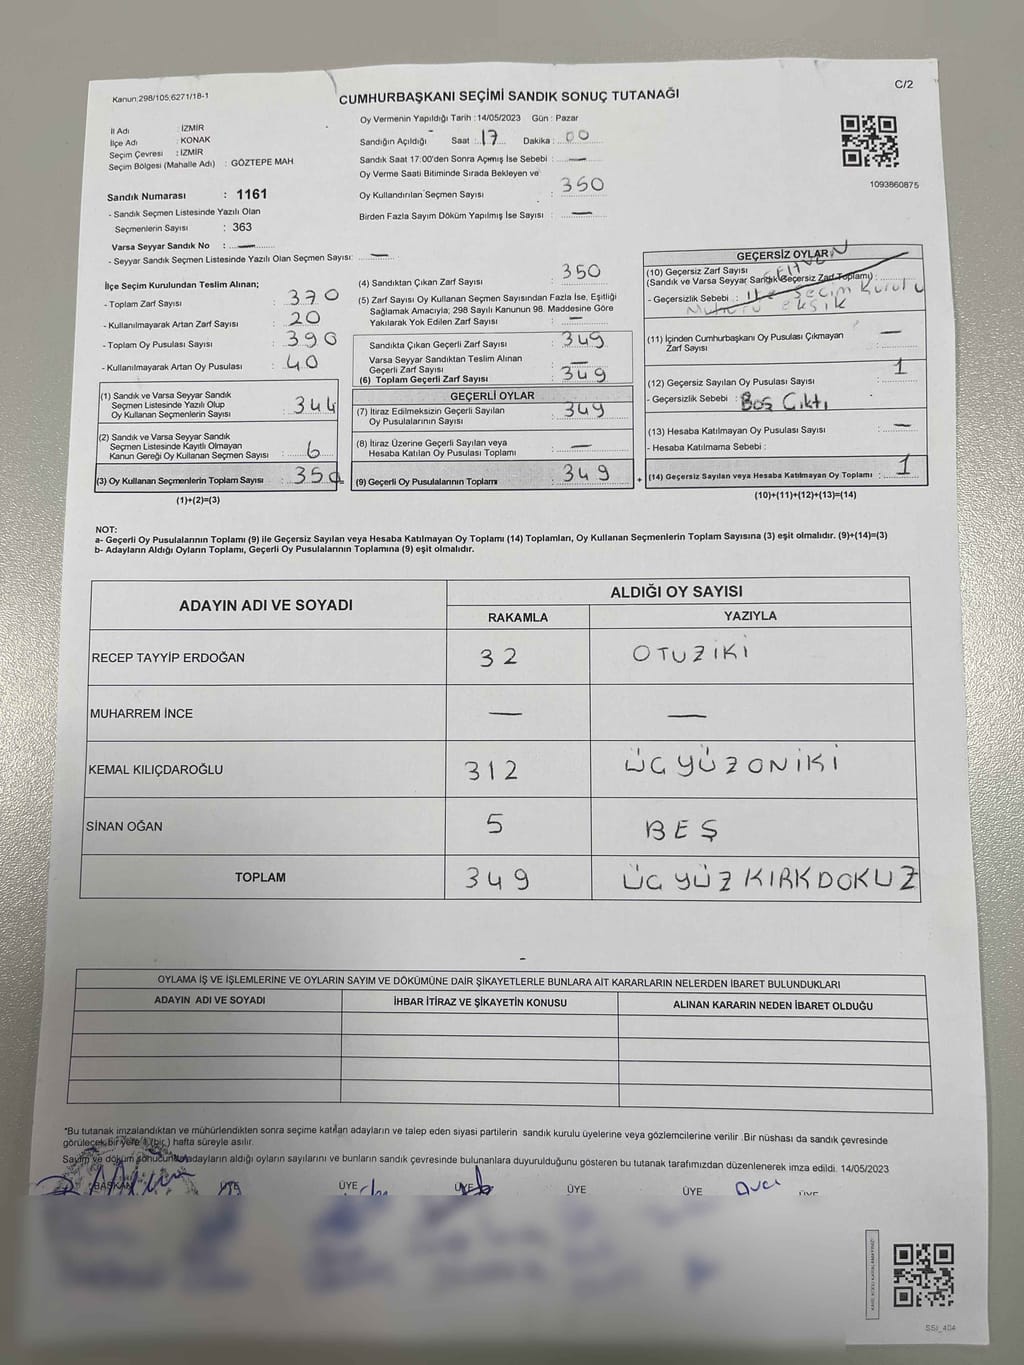 Kanun:298/105,6271/18-1
C/2
CUMHURBAŞKANI SEÇİMİ SANDIK SONUÇ TUTANAĞI
İl Adı : İZMİR
İlçe Adı : KONAK
Seçim Çevresi : İZMİR
Seçim Bölgesi (Mahalle Adı) : GÖZTEPE MAH
Sandık Numarası : 1161
- Sandık Seçmen Listesinde Yazılı Olan
Seçmenlerin Sayısı : 363
Varsa Seyyar Sandık No : —
- Seyyar Sandık Seçmen Listesinde Yazılı Olan Seçmen Sayısı: —
Oy Vermenin Yapıldığı Tarih :14/05/2023 Gün : Pazar
Sandığın Açıldığı Saat : 17 Dakika : 00
Sandık Saat 17:00'den Sonra Açımış İse Sebebi : —
Oy Verme Saati Bitiminde Sırada Bekleyen ve
Oy Kullandırılan Seçmen Sayısı : 350
Birden Fazla Sayım Döküm Yapılmış İse Sayısı : —
1093860875
İlçe Seçim Kurulundan Teslim Alınan;
- Toplam Zarf Sayısı : 370
- Kullanılmayarak Artan Zarf Sayısı : 20
- Toplam Oy Pusulası Sayısı : 390
- Kullanılmayarak Artan Oy Pusulası : 40
(1) Sandık ve Varsa Seyyar Sandık
Seçmen Listesinde Yazılı Olup
Oy Kullanan Seçmenlerin Sayısı : 344
(2) Sandık ve Varsa Seyyar Sandık
Seçmen Listesinde Kayıtlı Olmayan
Kanun Gereği Oy Kullanan Seçmen Sayısı : 6
(3) Oy Kullanan Seçmenlerin Toplam Sayısı : 350
(1)+(2)=(3)
(4) Sandıktan Çıkan Zarf Sayısı : 350
(5) Zarf Sayısı Oy Kullanan Seçmen Sayısından Fazla İse, Eşitliği
Sağlamak Amacıyla; 298 Sayılı Kanunun 98. Maddesine Göre
Yakılarak Yok Edilen Zarf Sayısı : —
Sandıkta Çıkan Geçerli Zarf Sayısı : 349
Varsa Seyyar Sandıktan Teslim Alınan
Geçerli Zarf Sayısı : —
(6) Toplam Geçerli Zarf Sayısı : 349
GEÇERLİ OYLAR
(7) İtiraz Edilmeksizin Geçerli Sayılan
Oy Pusulalarının Sayısı : 349
(8) İtiraz Üzerine Geçerli Sayılan veya
Hesaba Katılan Oy Pusulası Toplamı : —
(9) Geçerli Oy Pusulalarının Toplamı : 349
+
GEÇERSİZ OYLAR
(10) Geçersiz Zarf Sayısı
(Sandık ve Varsa Seyyar Sandık Geçersiz Zarf Toplamı) :
- Geçersizlik Sebebi : İlçe Seçim Kurulu
Mührü eksik
(11) İçinden Cumhurbaşkanı Oy Pusulası Çıkmayan
Zarf Sayısı : —
(12) Geçersiz Sayılan Oy Pusulası Sayısı : 1
- Geçersizlik Sebebi : Boş Çıktı
(13) Hesaba Katılmayan Oy Pusulası Sayısı : —
- Hesaba Katılmama Sebebi :
(14) Geçersiz Sayılan veya Hesaba Katılmayan Oy Toplamı : 1
(10)+(11)+(12)+(13)=(14)
NOT:
a- Geçerli Oy Pusulalarının Toplamı (9) ile Geçersiz Sayılan veya Hesaba Katılmayan Oy Toplamı (14) Toplamları, Oy Kullanan Seçmenlerin Toplam Sayısına (3) eşit olmalıdır. (9)+(14)=(3)
b- Adayların Aldığı Oyların Toplamı, Geçerli Oy Pusulalarının Toplamına (9) eşit olmalıdır.
ADAYIN ADI VE SOYADI
ALDIĞI OY SAYISI
RAKAMLA YAZIYLA
RECEP TAYYİP ERDOĞAN 32 OTUZİKİ
MUHARREM İNCE — —
KEMAL KILIÇDAROĞLU 312 ÜÇYÜZONİKİ
SİNAN OĞAN 5 BEŞ
TOPLAM 349 ÜÇYÜZKIRKDOKUZ
OYLAMA İŞ VE İŞLEMLERİNE VE OYLARIN SAYIM VE DÖKÜMÜNE DAİR ŞİKAYETLERLE BUNLARA AİT KARARLARIN NELERDEN İBARET BULUNDUKLARI
ADAYIN ADI VE SOYADI İHBAR İTİRAZ VE ŞİKAYETİN KONUSU ALINAN KARARIN NEDEN İBARET OLDUĞU
*Bu tutanak imzalandıktan ve mühürlendikten sonra seçime katılan adayların ve talep eden siyasi partilerin sandık kurulu üyelerine veya gözlemcilerine verilir .Bir nüshası da sandık çevresinde
görülecek bir yere 1 (bir ) hafta süreyle asılır.
Sayım ve döküm sonucunda adayların aldığı oyların sayılarını ve bunların sandık çevresinde bulunanlara duyurulduğunu gösteren bu tutanak tarafımızdan düzenlenerek imza edildi. 14/05/2023
BAŞKAN ÜYE ÜYE ÜYE ÜYE ÜYE ÜYE
SSI_404